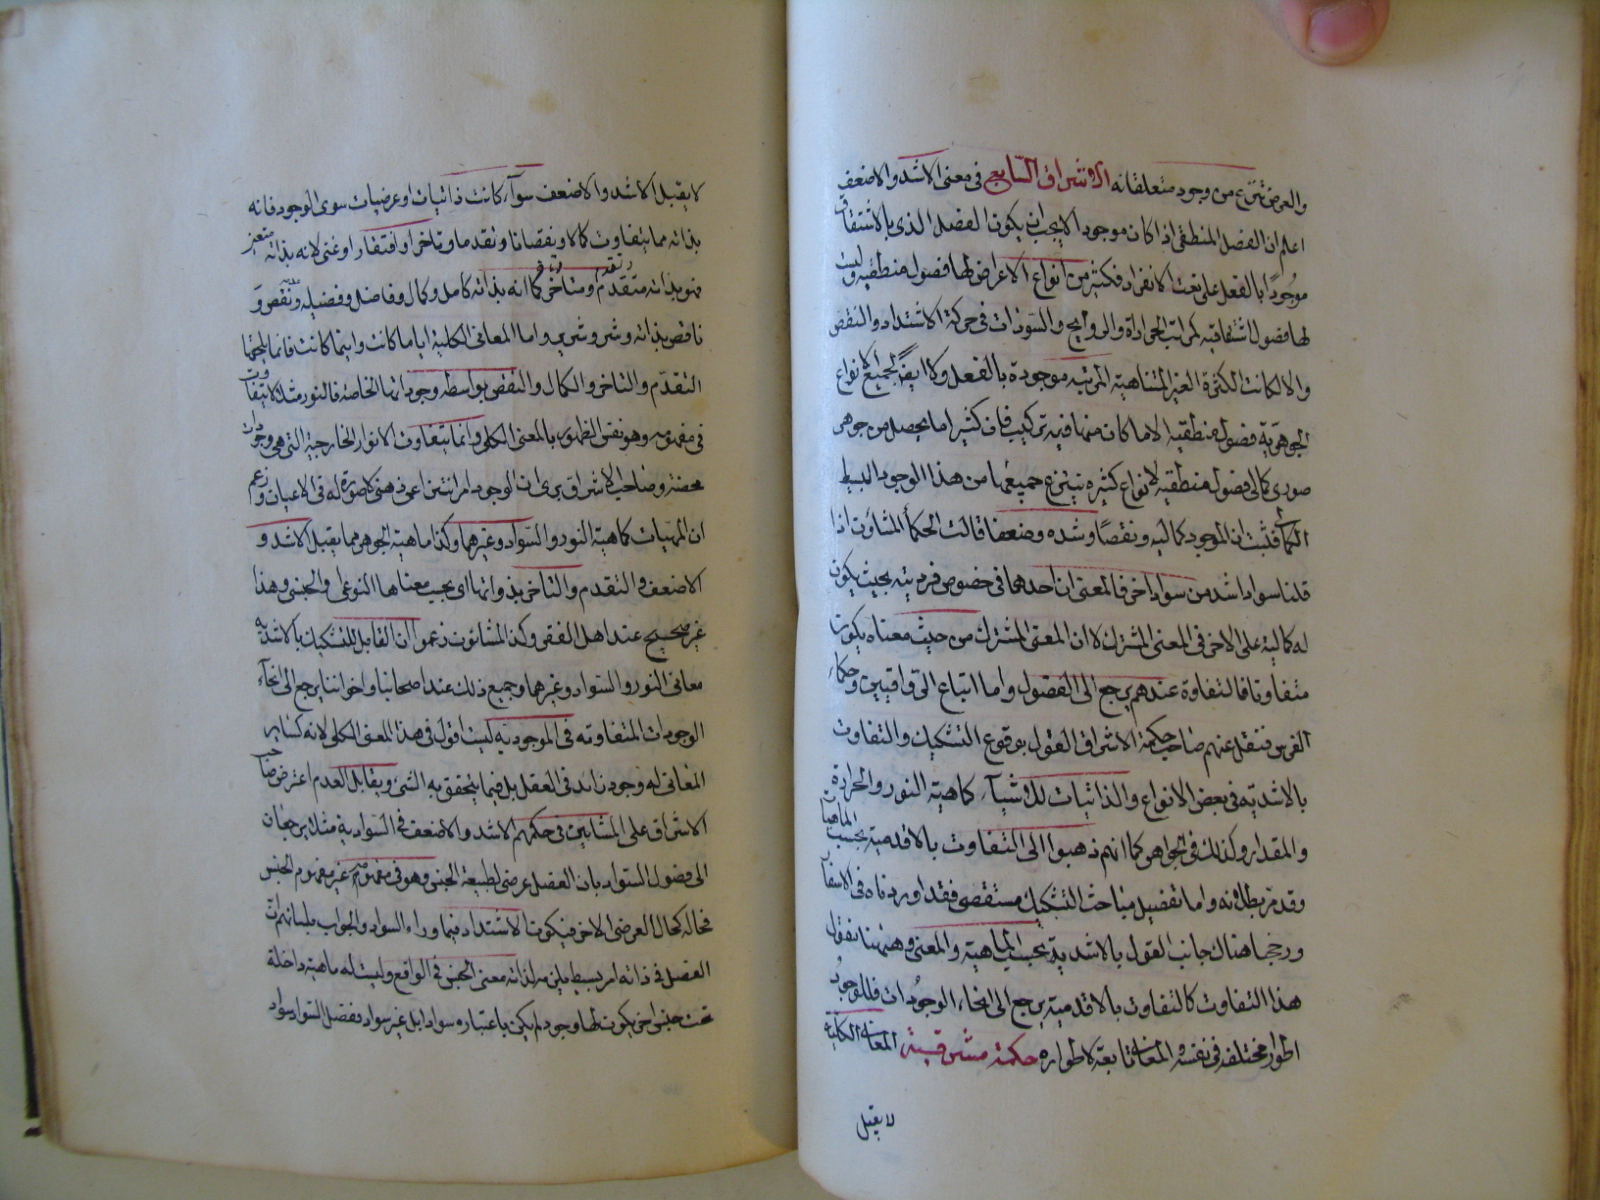 والعرض تنزع من وجود متعلقاته الاشراق السابع فى معنى الاشد والاضعف
اعلم ان الفصل المنطقى اذا كان موجودا لا يجب ان يكون الفصل الذى بالاشتقاق
موجودا بالفعل على نعت الانفراد فكثير من انواع الاعراض لها فصول منطقيه وليست
لها فصول اشتقاقيه كمراتب الحرارة والروايح والسوادات فى حركة الاشتداد والنقص
والا لكانت الكثرة الغير المتناهية المرتبه موجودة بالفعل وكا لجميع الانواع
الجوهرية فصول منطقيه الا ما كان منها فيه تركيب فان كثيرا ما يحصل من جوهر
صورى كمالى فصول منطقيه لانواع كثيره ينتزع جميعها من هذا الوجود البسيط
فثبت ان للوجود كماليه ونقصا وشده وضعفا قالت الحكماء المشاؤن اذا
قلنا سواد اشد من سواد اخر فالمعنى ان احدهما فى خصوص فرديته بحيث يكون
له كمالية على الاخر فى المعنى المشترك لا ان المعنى المشترك من حيث معناه يكون
متفاوتا فالتفاوة عندهم يرجع الى الفصول واما اتباع الرواقيين وحكماء
الفرس فنقل عنهم صاحب حكمة الاشراق القول بوقوع التشكيك والتفاوت
بالاشديه فى بعض الانواع والذاتيات للاشيآء كماهية النور والحرارة
والمقدار وكذلك فى الجواهر كما انهم ذهبوا الى التفاوت بالاقدمية بحسب الماهيات
وقد مر بطلانه واما تفصيل مباحث التشكيك مستقصى فقد اوردناه فى الاسفار
ورجحنا هناك جانب القول بالاشدية بحسب الماهية والمعنى وههنا نقول
هذا التفاوت كالتفاوت بالاقدمية يرجع الى انحاء الوجودات فللوجود
اطوار مختلفه فى نفسه والمعانى تابعة لاطواره حكمة مشرقية المعانى الكلية
لا يقبل
لا يقبل الاشد والاضعف سوآء كانت ذاتيات او عرضيات سوى الوجود فانه
بذاته مما يتفاوت كمالا ونقصانا وتقدما وتاخرا وافتقارا وغنى لانه بذاته متعين
فهو بذاته متقدم وتقدم ومتاخر وتاخر كما انه بذاته كامل وكمال وفاضل وفضيله ونقص و
ناقص بذاته وشر وشرير واما المعانى الكلية اياما كانت واينما كانت فانما يلحقها
التقدم والتاخر والكمال والنقص بواسطه وجوداتها الخاصة فالنور مثلا لا يتفاوت
فى مفهومه وهو نفس الظهور بالمعنى الكلى وانما يتفاوت الانوار الخارجية التى هى وجودات
محضة وصاحب الاشراق يرى ان الوجود امر انتزاعى ذهنى لا صورة له فى الاعيان وزعم
ان المهيات كماهية النور والسواد وغيرهما وكذا ماهية الجوهر مما يقبل الاشد و
الاضعف والتقدم والتاخر بذواتها اى بحسب معناها النوعى والجنسى وهذا
غير صحيح عند اهل الفقر وكذا المشائون زعموا ان القابل للتشكيك بالاشديه
معانى النور والسواد وغيرهما وجميع ذلك عند اصحابنا واخواننا يرجع الى انحآء
الوجودات المتفاوته فى الموجوديه لست اقول فى هذا المعنى الكلى لانه كساير
المعانى له وجود زائد فى العقل بل فيما يتحقق به الشئ ويقابل العدم اعترض صاحب
الاشراق على المشائين فى حكمهم الاشد والاضعف فى السوادية مثلا يرجعان
الى فصول السواد بان الفصل عرضى لطبيعة الجنس وهو فى مفهومه غير مفهوم الجنس
فحاله كحال العرضى الاخر فيكون الاشتداد فيما وراء السواد والجواب ان
الفصل فى ذاته امر بسيط يلزمه لذاته معنى الجنس فى الواقع وليست له ماهية داخلة
تحت جنس اخر يكون لها وجود لم يكن باعتباره سوادا بل غير سواد ففصل السواد سواد